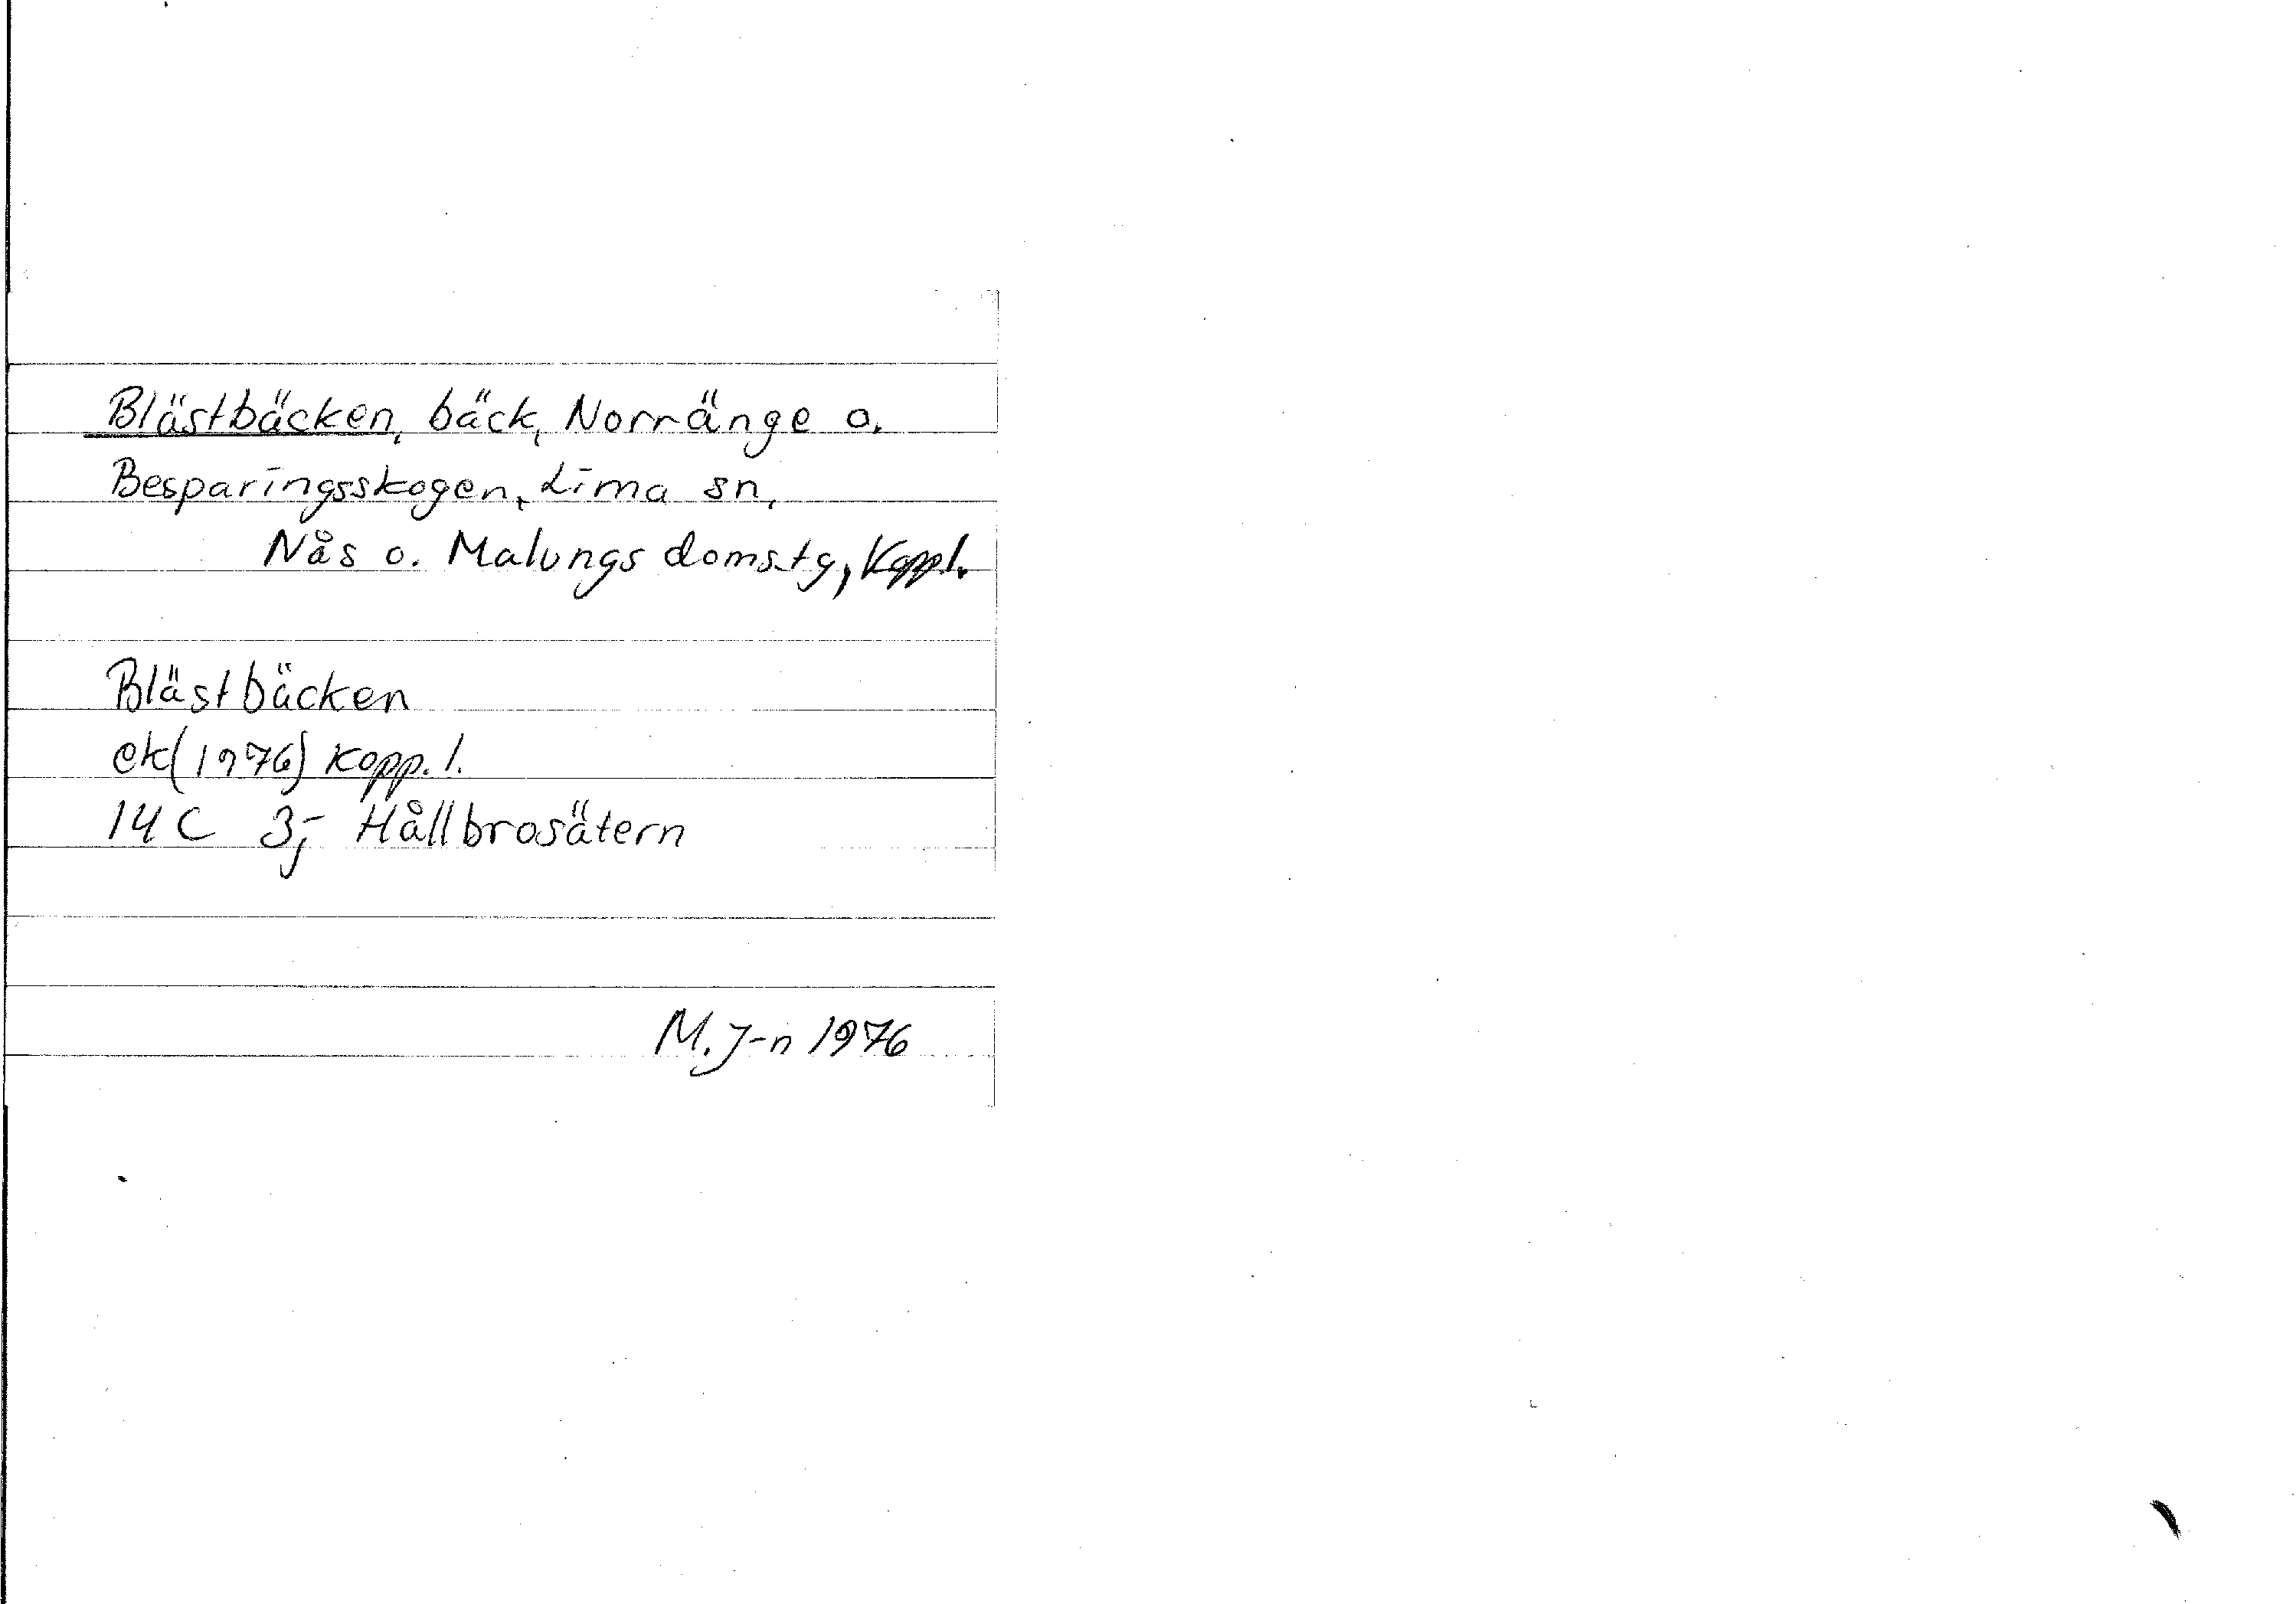 Blästbäcken, bäck, Norränge o.
Besparingsskogen, Lima sn,
Nås o. Malungs domstg, Koppl.
Blästbäcken
ek(1976) Kopp. l.
14 C 3j Hållbrosätern
M. J-n 1976